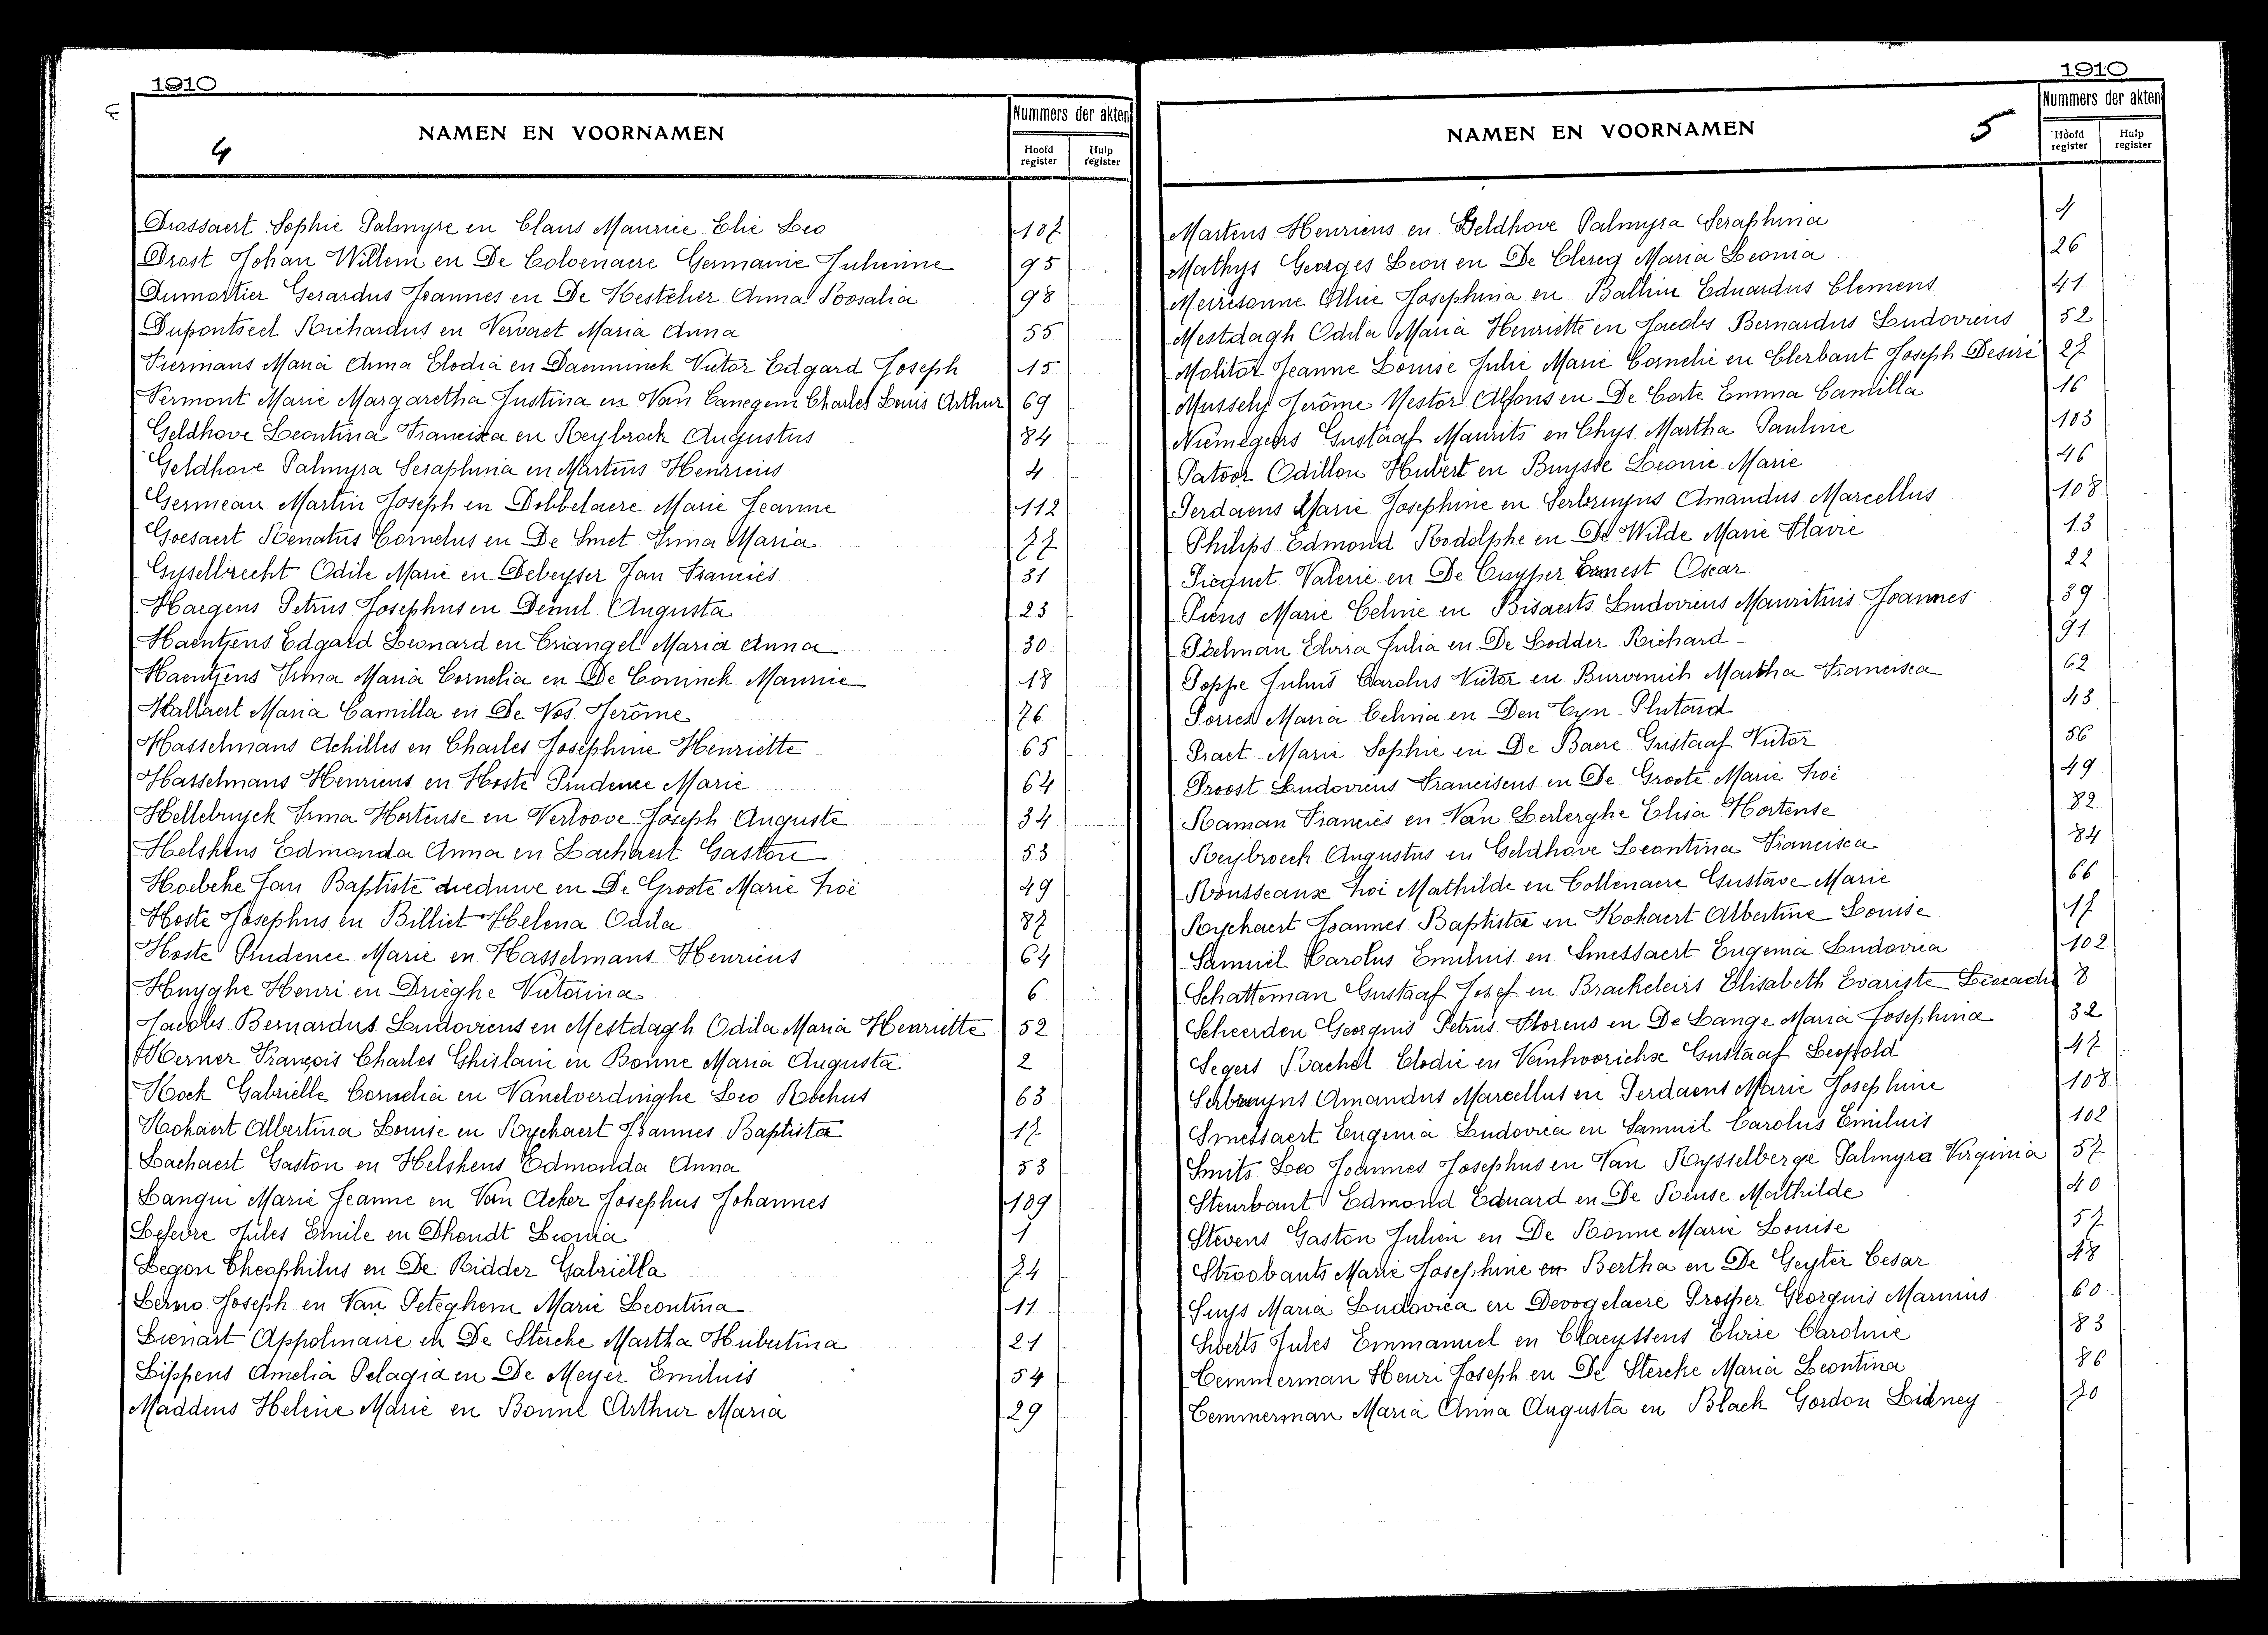 1910
4
NAMEN EN VOORNAMEN
Nummers der akten
Hoofd register
Hulp register
Drossaert Sophie Palmyre en Claus Maurice Elie Leo 107
Drost Johan Willem en De Colvenaere Germanie Julienne 95
Dumortier Gerardus Joannes en De Kestelier Anna Rosalia 98
Dupontseel Richardus en Vervaet Maria Anna 55
Fiermans Maria Anna Elodia en Daeninck Victor Edgard Joseph 15
Fermont Marie Margaretha Justina en Van Canegem Charles Louis Arthur 69
Geldhove Leontina Francisca en Reybroek Augustus 84
Geldhove Palmyra Seraphina en Martens Henricus 4
Germeau Martin Joseph en Dobbelaere Marie Jeanne 112
Goesaert Renatus Cornelus en De Smet Irma Maria 77
Gyselbrecht Odile Marie en Debeyser Jan Francies 31
Haegens Petrus Josephus en Demul Augusta 23
Haentjens Edgard Leonard en Triangel Maria Anna 30
Haentjens Irma Maria Cornelia en De Coninck Maurice 18
Hallaert Maria Camilla en De Vos Jerôme 76
Hasselmans Achilles en Charles Josephine Henriette 65
Hasselmans Henricus en Hoste Prudence Marie 64
Hellebuyck Irma Hortense en Verloove Joseph Auguste 34
Helskens Edmonda Anna en Lachaert Gaston 53
Hoebeke Jan Baptiste dieduwe en De Groote Marie Zoë 49
Hoste Josephus en Billiet Helena Odila 87
Hoste Prudence Marie en Hasselmans Henricus 64
Huyghe Henri en Drieghe Victorina 6
Jacobs Bernardus Ludovicus en Mestdagh Odila Maria Henriette 52
Kerner François Charles Ghislain en Bonne Maria Augusta 2
Kock Gabrielle Cornelia en Vanelverdinghe Leo Rochus 63
Kokaert Albertina Louise en Rychaert Joannes Baptista 17
Lachaert Gaston en Helskens Edmonda Anna 53
Langui Marie Jeanne en Van Acker Josephus Johannes 109
Lefevre Jules Emile en Dhondt Leonia 1
Legon Theophilus en De Ridder Gabriella 74
Lerno Joseph en Van Peteghem Marie Leontina 11
Lienart Appolinaire en De Stercke Martha Hubertina 21
Lippens Amelia Pelagia en De Meyer Emilius 54
Maddens Heleine Marie en Bonne Arthur Maria 29
1910
NAMEN EN VOORNAMEN
5
Nummers der akten
Hoofd register
Hulp register
Martens Henricus en Geldhove Palmyra Seraphina 4
Mathys Georges Leon en De Clercq Maria Leonia 26
Meiresonne Allice Josephina en Ballin Eduardus Clemens 41
Mestdagh Odila Maria Henriette en Jacobs Bernardus Ludovicus 52
Molitor Jeanne Louise Julie Marie Cornelie en Clerbaut Joseph Desiré 27
Mussely Jerôme Nestor Alfons en De Corte Emma Camilla 16
Niemegeers Gustaaf Maurits en Thys Martha Pauline 103
Patoor Odillon Hubert en Buysse Leonie Marie 46
Perdaens Marie Josephine en Serbruyns Amandus Marcellus 108
Philips Edmond Rodolphe en De Wilde Marie Flavie 13
Picquet Valerie en De Cuyper Ernest Oscar 22
Piens Marie Celine en Bisaerts Ludovicus Mauritius Joannes 39
Poelman Elvira Julia en De Lodder Richard 91
Poppe Julius Carolus Victor en Burvenich Martha Francisca 62
Porres Maria Celina en Den Tyn Plutard 43
Praet Marie Sophie en De Baere Gustaaf Victor 56
Proost Ludovicus Franciscus en De Groote Marie Zoë 49
Raman Francies en Van Lerberghe Elisa Hortense 82
Reybroeck Augustus en Geldhove Leontina Francisca 84
Rousseaux Zoë Mathilde en Collenaere Gustave Marie 66
Rychaert Joannes Baptista en Kokaert Albertine Louise 17
Samuil Carolus Emilius en Smessaert Eugenia Ludovica 102
Schatteman Gustaaf Josef en Brackeleirs Elisabeth Evariste Leocadie 8
Scheerden Georguis Petrus Florens en De Lange Maria Josephina 32
Segers Rachel Elodie en Vanhoorickx Gustaaf Leopold 47
Serbruyns Amandus Marcellus en Perdaens Marie Josephine 108
Smessaert Eugenia Ludovica en Samuil Carolus Emilius 102
Smits Leo Joannes Josephus en Van Rysselberge Palmyra Virginia 57
Steurbaut Edmond Eduard en De Reuse Mathilde 40
Stevens Gaston Julien en De Ronne Marie Louise 57
Stroobants Marie Josephine en Bertha en De Geyter Cesar 48
Suys Maria Ludovica en Devogelaere Prosper Georguis Marinus 60
Swerts Jules Emmanuel en Claeyssens Elvire Caroline 83
Temmerman Henri Joseph en De Stercke Maria Leontina 86
Temmerman Maria Anna Augusta en Black Gordon Lidney 70